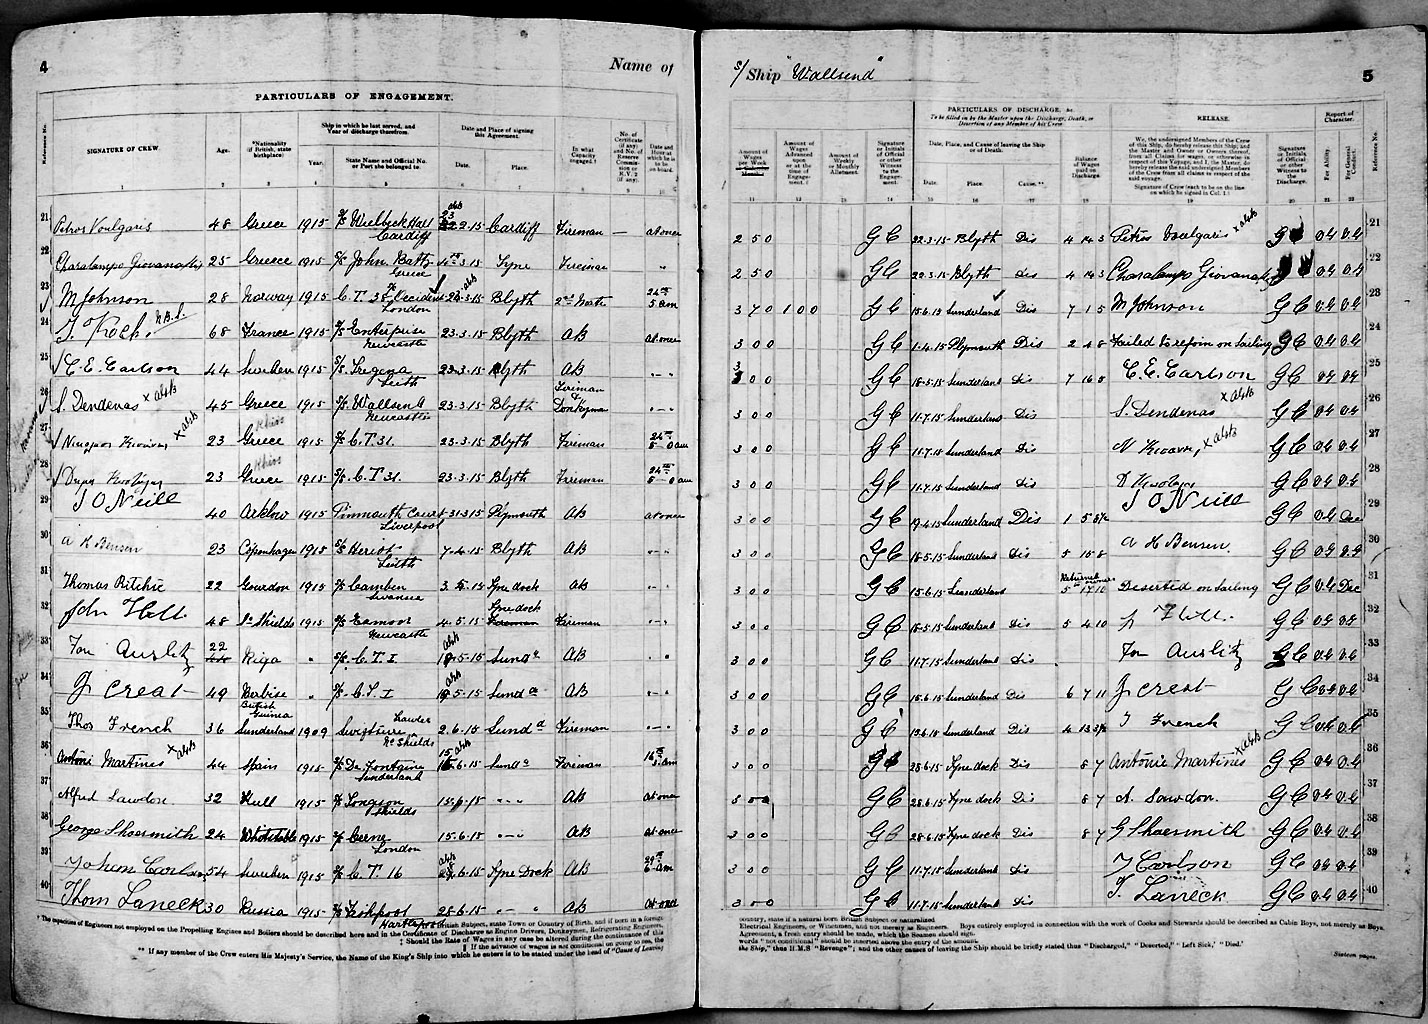 4
Name of
PARTICULARS OF ENGAGEMENT.
Reference No.
SIGNATURE OF CREW
Age.
*Nationality (if British, state birthplace)
Ship in which he last served, and Year of discharge therefrom.
Year.
State Name and Official No. or Port she belonged to.
Date and Place of signing this Agreement.
Date.
Place.
In what Capacity engaged.
No. of Certificate (if any) and No. of Reserve Commission or R.V.2 (if any).
Date and Hour at which he is to be on board.
1 2 3 4 5 6 7 8 9 10
21 Petros Voulgaris 48 Greece 1915 S/S Welbeck Hall Cardiff 22.2.15 Cardiff Fireman — at once
22 Charalampo Giovanaftis 25 Greece 1915 S/S John Batty 3.15 Tyne Fireman "
23 M Johnson 28 Norway 1915 C.T. 38 Occident London 23.3.15 Blyth 2nd Mate 24th 5 am
24 J. Koch. 68 France 1915 S/S Enterprise Newcastle 23.3.15 Blyth AB at once
25 C. E. Carlson 44 Sweden 1915 S/S Tregena Leith 23.3.15 Blyth AB - -
26 S. Dendenas x abstr 45 Greece 1915 S/S Wallsend Newcastle 23.3.15 Blyth Fireman & Donkeyman - -
27 23 Greece Khios 1915 S/S C.T.31. 23.3.15 Blyth Fireman 24th 5-0 am
28 23 Greece Khios 1915 S/S C.T 31. 23.3.15 Blyth Fireman 24th 5-0 am
29 J O Neill 40 Arklow 1915 Liverpool 31.3.15 Plymouth AB at once
30 A H Bensen 23 Copenhagen 1915 S/S Heriot Leith 7.4.15 Blyth AB - -
31 Thomas Ritchie 22 Gourdon 1915 S/S Camden Swansea 3.5.15 Tyne dock AB - -
32 John Hall 48 So Shields 1915 S/S Eamoor Newcastle 4.5.15 Tyne dock Fireman - -
33 22 Riga " S/S C.T. I 5.15 Sund d AB
34 J Creat 49 Berbise British Guinea " S/S C.T. I 5.15 Sund d AB - -
35 Thos French 36 Sunderland 1909 Swisture No Shields 2.6.15 Sund d Fireman - -
36 Antoni Martines x abstr 44 Spain 1915 S/S De Fontaine Sunderland 15.6.15 Sund d Fireman 16th 5 am
37 Alfred Sawdon 32 Hull 1915 S/S Longson Shields 15.6.15 " " AB at once
38 George Shoesmith 24 Whitstable 1915 S/S Cerne London 15.6.15 " " AB at once
39 Johem Carlson 54 Sweden 1915 S/S C.T. 16 6.15 Tyne Dock AB 29th 6 am
40 Thom Laneck 30 Russia 1915 S/S Fishpool Hartlepool 28.6.15 " " AB at once
S/ Ship "Wallsend"
5
PARTICULARS OF DISCHARGE, &c.
To be filled in by the Master upon the Discharge, Death, or Desertion of any Member of his Crew
Amount of Wages per Week
Amount of Wages Advanced upon or at the time of Engagement.
Amount of Weekly or Monthly Allotment.
Signature or Initials of Official or other Witness to the Engagement.
Date, Place, and Cause of leaving the Ship or of Death.
Date. Place. Cause.**
Balance of Wages paid on Discharge.
RELEASE.
We, the undersigned Members of the Crew of this Ship, do hereby release this Ship, and the Master and Owner or Owners thereof, from all claims for wages, or otherwise in respect of this Voyage, and I, the Master, do hereby release the said undersigned Members of the Crew from all claims in respect of the said voyage.
Signature of Crew (each to be on the line on which he signed in Col. 1.)
Signature or Initials of Official or other Witness to the Discharge.
Report of Character.
For Ability.
For General Conduct.
Reference No.
11 12 13 14 15 16 17 18 19 20 21 22
2 5 0 GC 22.3.15 Blyth Dis 4 14 3 Petros Voulgaris x abstr VG VG 21
2 5 0 GC 22.3.15 Blyth Dis 4 14 3 Charalampo Giovanaftis VG VG 22
3 7 0 1 0 0 GC 15.6.15 Sunderland Dis 7 1 5 M Johnson GC VG VG 23
3 0 0 GC 1.4.15 Plymouth Dis 2 4 8 Failed to rejoin on Sailing GC VG VG 24
3 0 0 GC 18.5.15 Sunderland Dis 7 16 8 C. E. Carlson GC VG VG 25
3 0 0 GC 11.7.15 Sunderland Dis S. Dendenas x abstr GC VG VG 26
3 0 0 GC 11.7.15 Sunderland Dis x abstr GC VG VG 27
3 0 0 GC 11.7.15 Sunderland Dis GC VG VG 28
3 0 0 GC 19.4.15 Sunderland Dis 1 5 J O Neill GC VG Dec 29
3 0 0 GC 18.5.15 Sunderland Dis 5 15 8 A H Bensen. GC VG VG 30
3 0 0 GC 15.6.15 Sunderland 5 17 10 Deserted on Sailing GC VG Dec 31
3 0 0 GC 18.5.15 Sunderland Dis 5 4 10 GC VG VG 32
3 0 0 GC 11.7.15 Sunderland Dis GC VG VG 33
3 0 0 GC 15.6.15 Sunderland Dis 6 7 11 J Creat GC VG VG 34
3 0 0 GC 13.6.15 Sunderland Dis 4 13 T French GC VG VG 35
3 0 0 GC 28.6.15 Tyne dock Dis 8 7 Antonio Martines x abstr GC VG VG 36
3 0 0 GC 28.6.15 Tyne dock Dis 8 7 A. Sawdon. GC VG VG 37
3 0 0 GC 28.6.15 Tyne dock Dis 8 7 G Shoesmith GC VG VG 38
3 0 0 GC 11.7.15 Sunderland Dis J Carlson GC VG VG 39
3 0 0 GC 11.7.15 Sunderland Dis T. Laneck GC VG VG 40
* The capacities of Engineers not employed on the Propelling Engines and Boilers should be described here and in the Certificate of Discharge as Engine Drivers, Donkeymen, Refrigerating Engineers,
‡ Should the Rate of Wages in any case be altered during the continuance of this
‖ If the advance of wages is not conditional on going to sea, the
** If any member of the Crew enters His Majesty's Service, the Name of the King's Ship into which he enters is to be stated under the head of "Cause of Leaving
country, state if a natural born British Subject or naturalized
Electrical Engineers, or Winchmen, and not merely as Engineers. Boys entirely employed in connection with the work of Cooks and Stewards should be described as Cabin Boys, not merely as Boys.
Agreement, a fresh entry should be made, which the Seamen should sign.
words "not conditional" should be inserted above the entry of the amount.
the Ship," thus H.M.S "Revenge"; and the other causes of leaving the Ship should be briefly stated thus "Discharged," "Deserted," "Left Sick," "Died."
Sixteen pages.